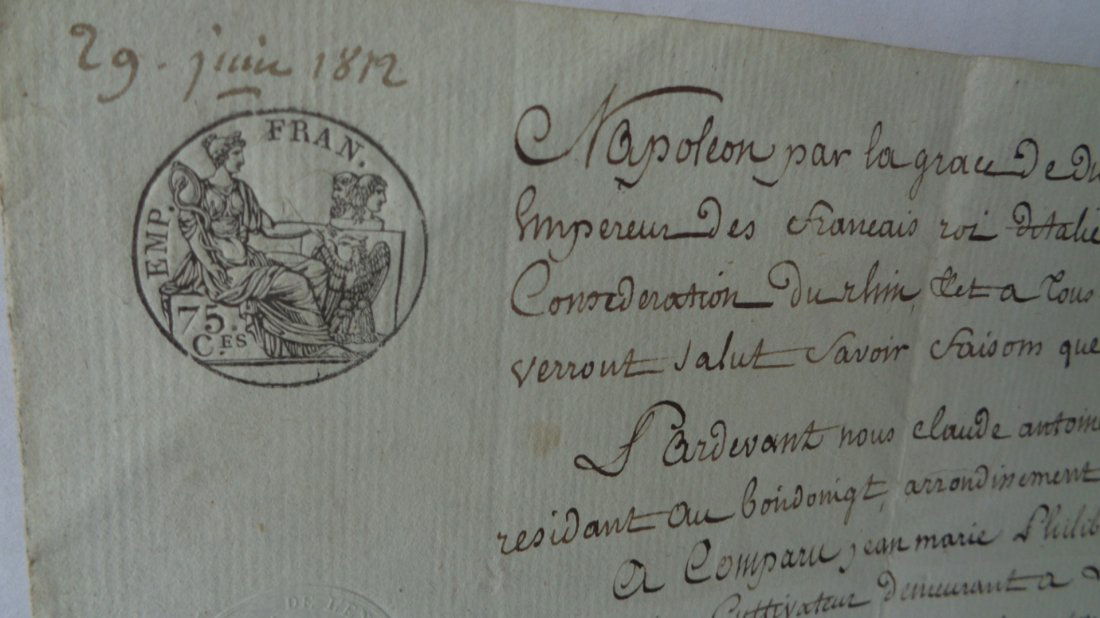 29. juin 1812
EMP. FRAN.
75.
C.ES
Napoleon par la grace de di
Empereur des francais roi ditalie
Confederation du rhin, et a tous
verront salut savoir faisom que
Pardevant nous claude antoine
residant au boudonigt, arrondissement
a Comparu jean marie Philib
Cultivateur demeurant a
DE L'EN